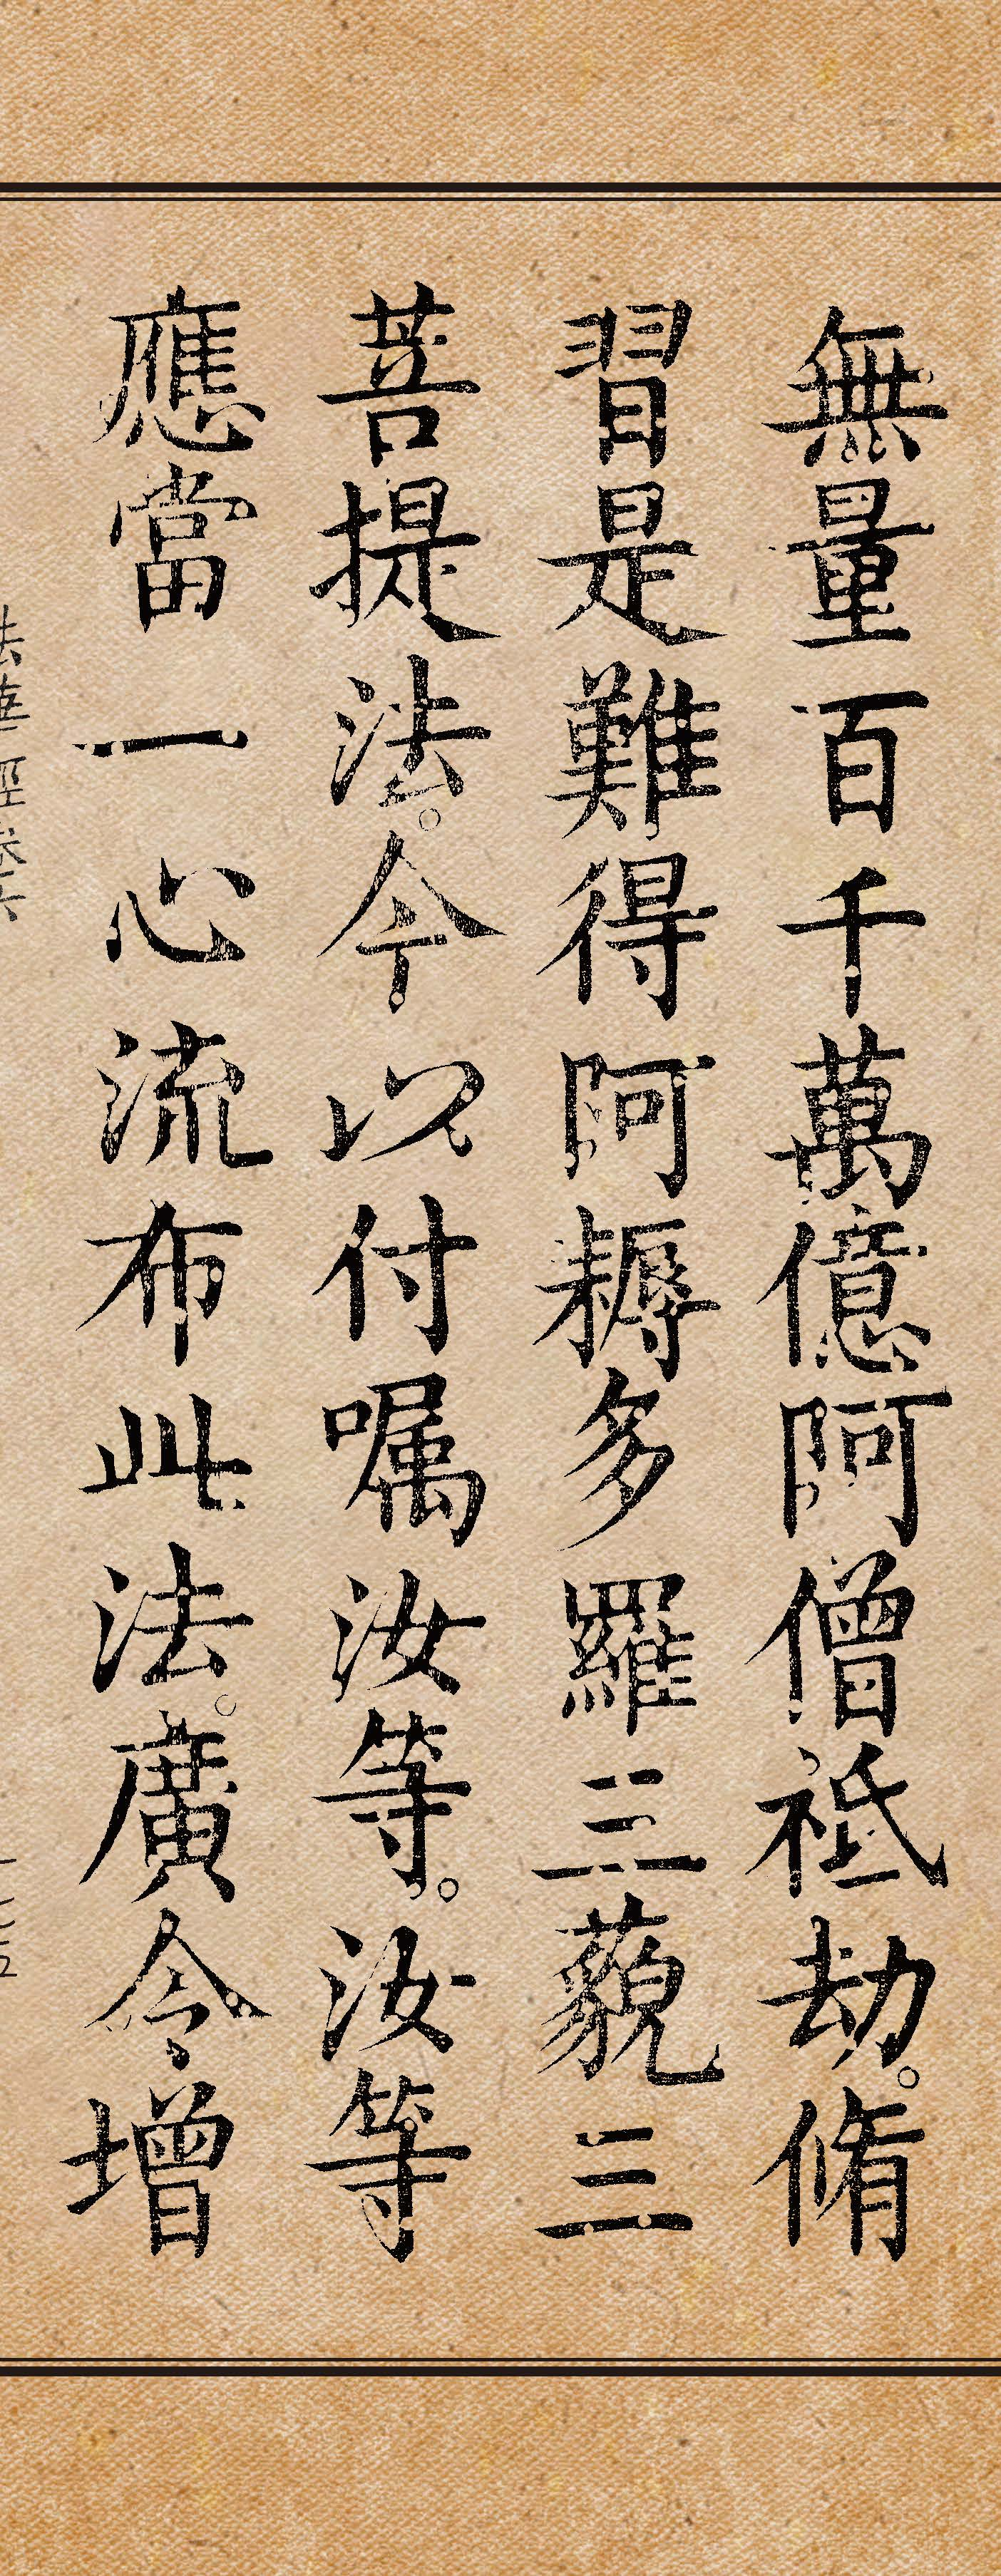 無量百千萬億阿僧祇劫。脩
習是難得阿耨多羅三藐三
菩提法。今以付嘱汝等。汝等
應當一心流布此法。廣令增
法華經卷六